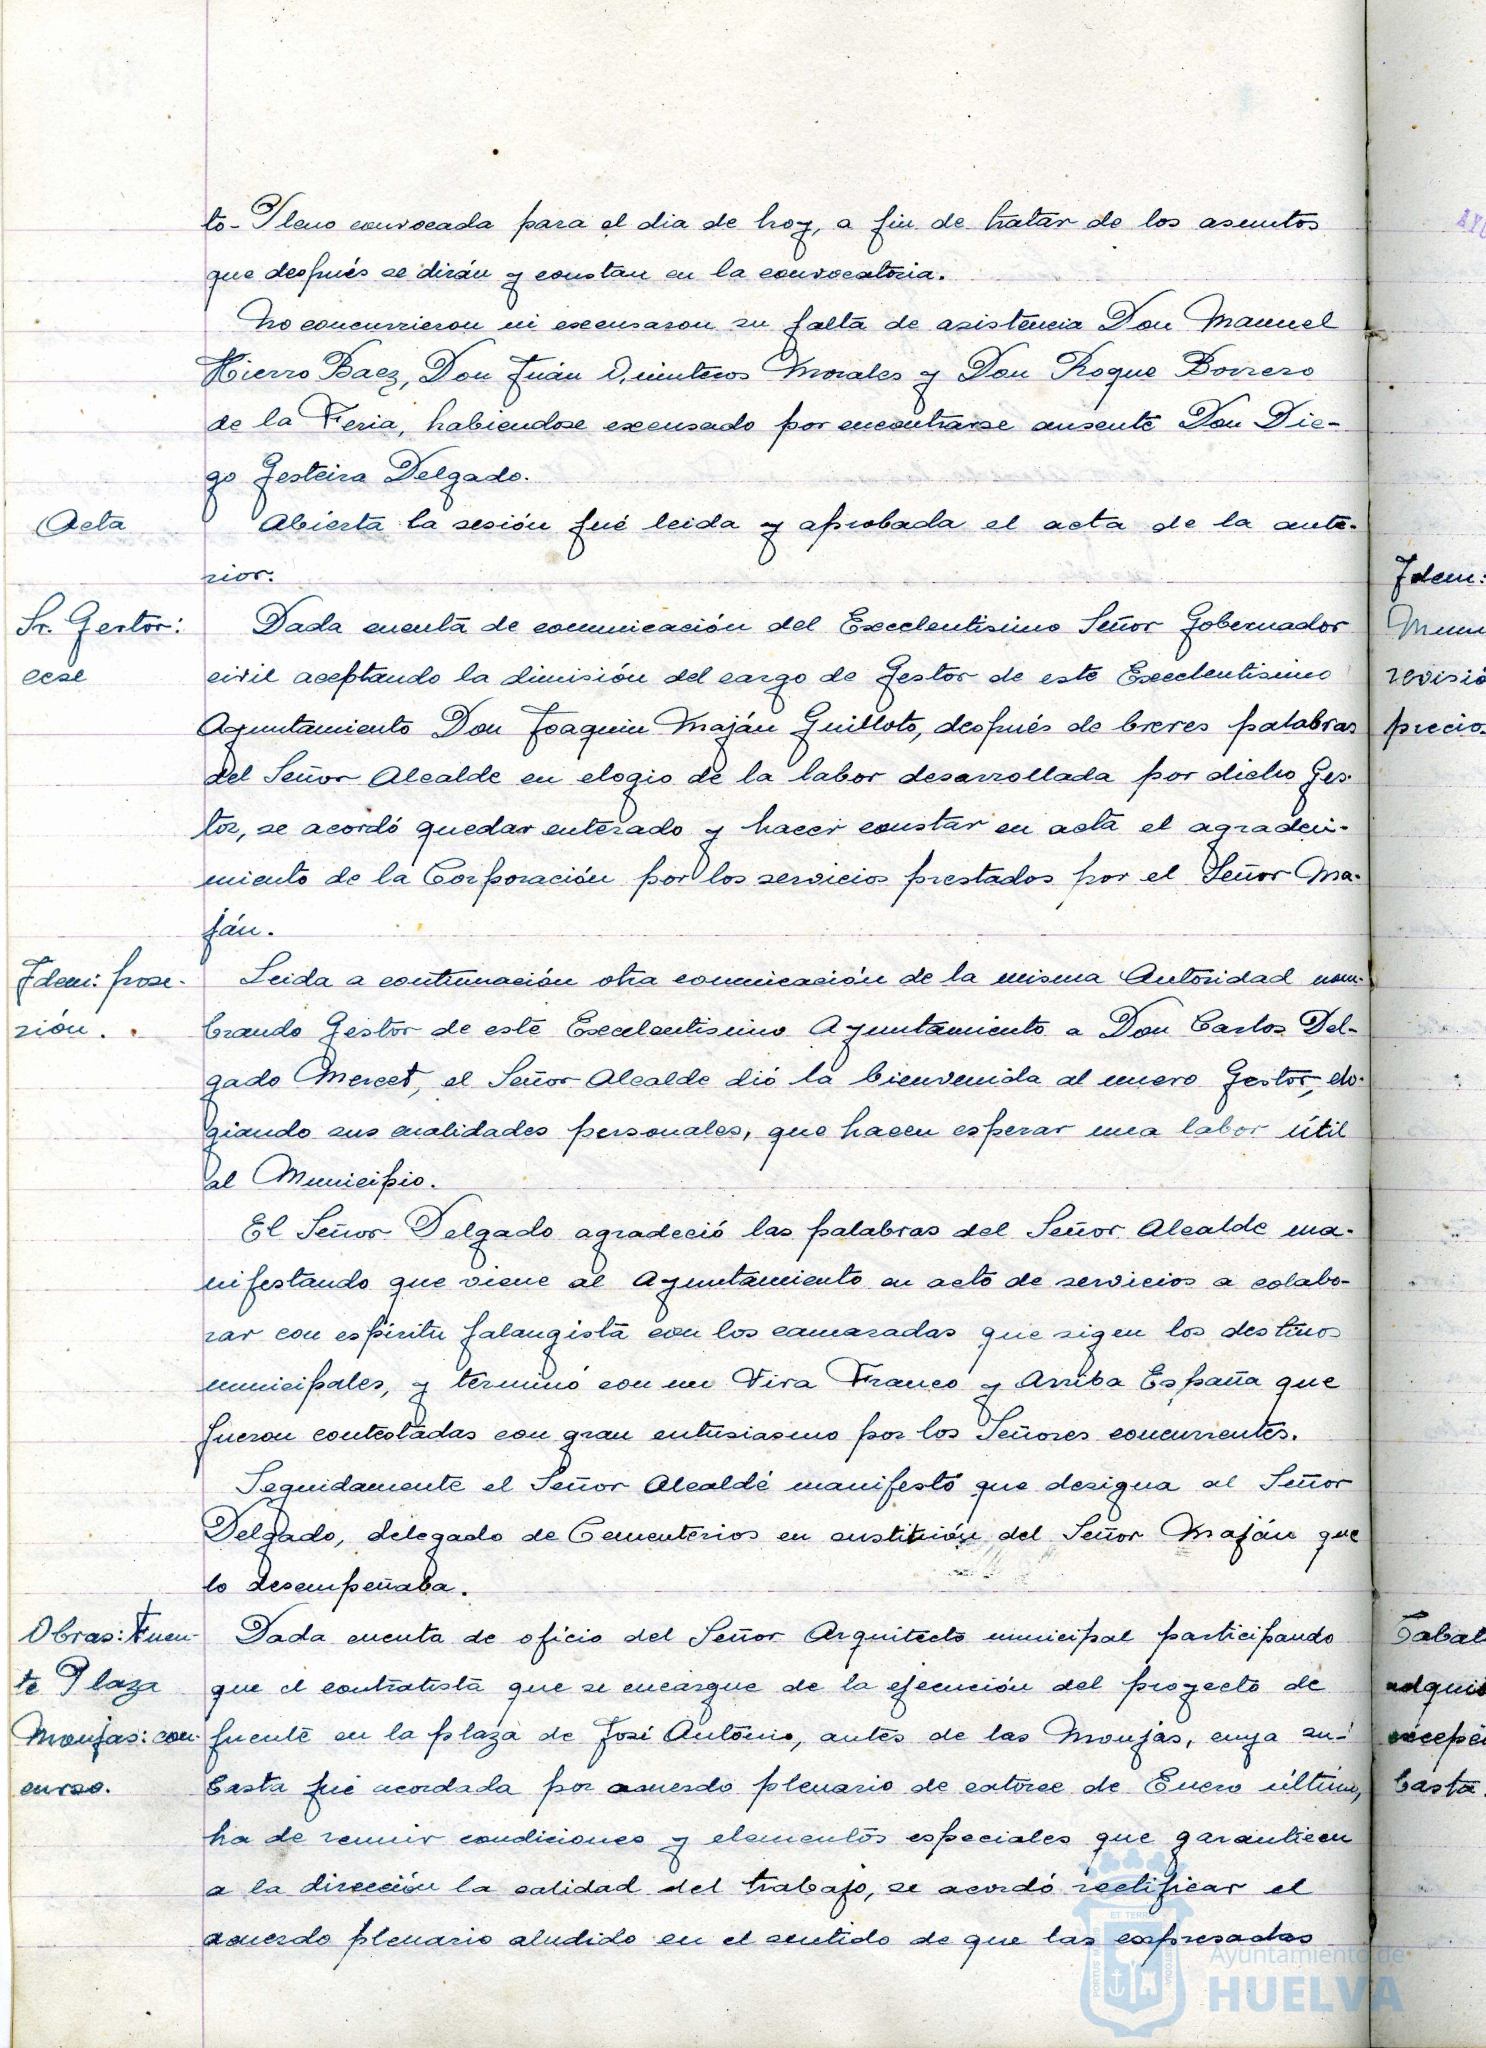 to-Pleno convocada para el dia de hoy, a fin de tratar de los asuntos
que después se dirán y constan en la convocatoria.
No concurrieron ni excusaron su falta de asistencia Don Manuel
Hierro Baez, Don Juán Quinteros Morales y Don Roque Borrero
de la Feria, habiendose excusado por encontrarse ausente Don Die-
go Gesteira Delgado.
Acta
Abierta la sesión fué leida y aprobada el acta de la ante-
rior.
Sr. Gestor:
cese
Dada cuenta de comunicación del Excelentisimo Señor Gobernador
civil aceptando la dimisión del cargo de Gestor de este Excelentisimo
Ayuntamiento Don Joaquin Maján Guilloto, después de breves palabras
del Señor Alcalde en elogio de la labor desarrollada por dicho Ges-
tor, se acordó quedar enterado y hacer constar en acta el agradeci-
miento de la Corporación por los servicios prestados por el Señor Ma-
ján.
Idem: pose-
sión.
Leida a continuación otra comunicación de la misma Autoridad nom-
brando Gestor de este Excelentisimo Ayuntamiento a Don Carlos Del-
gado Mercet, el Señor Alcalde dió la bienvenida al nuevo Gestor, elo-
giando sus cualidades personales, que hacen esperar una labor útil
al Municipio.
El Señor Delgado agradeció las palabras del Señor Alcalde ma-
nifestando que viene al Ayuntamiento en acto de servicios a colabo-
rar con espiritu falangista con los camaradas que rigen los destinos
municipales, y terminó con un Viva Franco y Arriba España que
fueron contestadas con gran entusiasmo por los Señores concurrentes.
Seguidamente el Señor Alcalde manifestó que designa al Señor
Delgado, delegado de Cementerios en sustitución del Señor Maján que
lo desempeñaba.
Obras: Fuen-
te Plaza
Monjas: con-
curso.
Dada cuenta de oficio del Señor Arquitecto municipal participando
que el contratista que se encargue de la ejecución del proyecto de
fuente en la plaza de José Antonio, antes de las Monjas, cuya su-
basta fué acordada por acuerdo plenario de catorce de Enero último,
ha de reunir condiciones y elementos especiales que garanticen
a la dirección la calidad del trabajo, se acordó rectificar el
acuerdo plenario aludido en el sentido de que las expresadas
Idem:
revisió
precio
Tabal
adquis
excepci
basta.
Ayuntamiento de
HUELVA